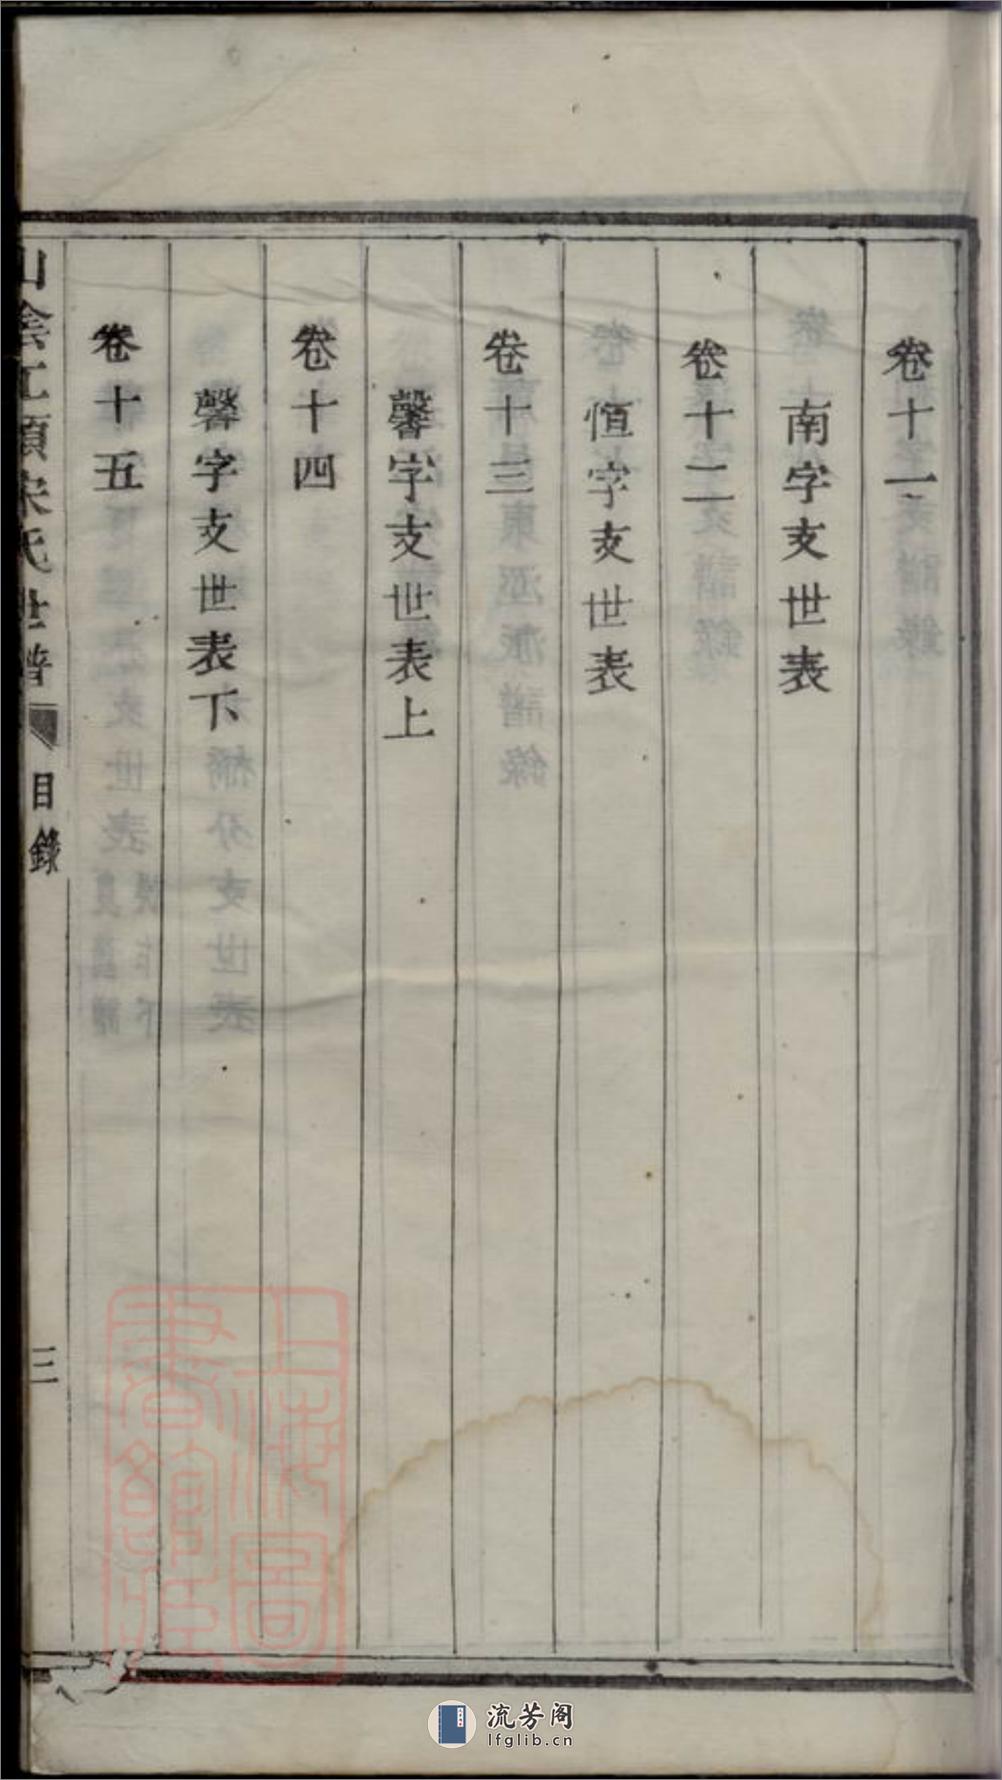 卷十一
南字支世表
卷十二
恒字支世表
卷十三
馨字支世表上
卷十四
馨字支世表下
卷十五
山陰江頭宋氏世譜
目錄
三
上海圖書館藏
流芳阁
lfglib.cn